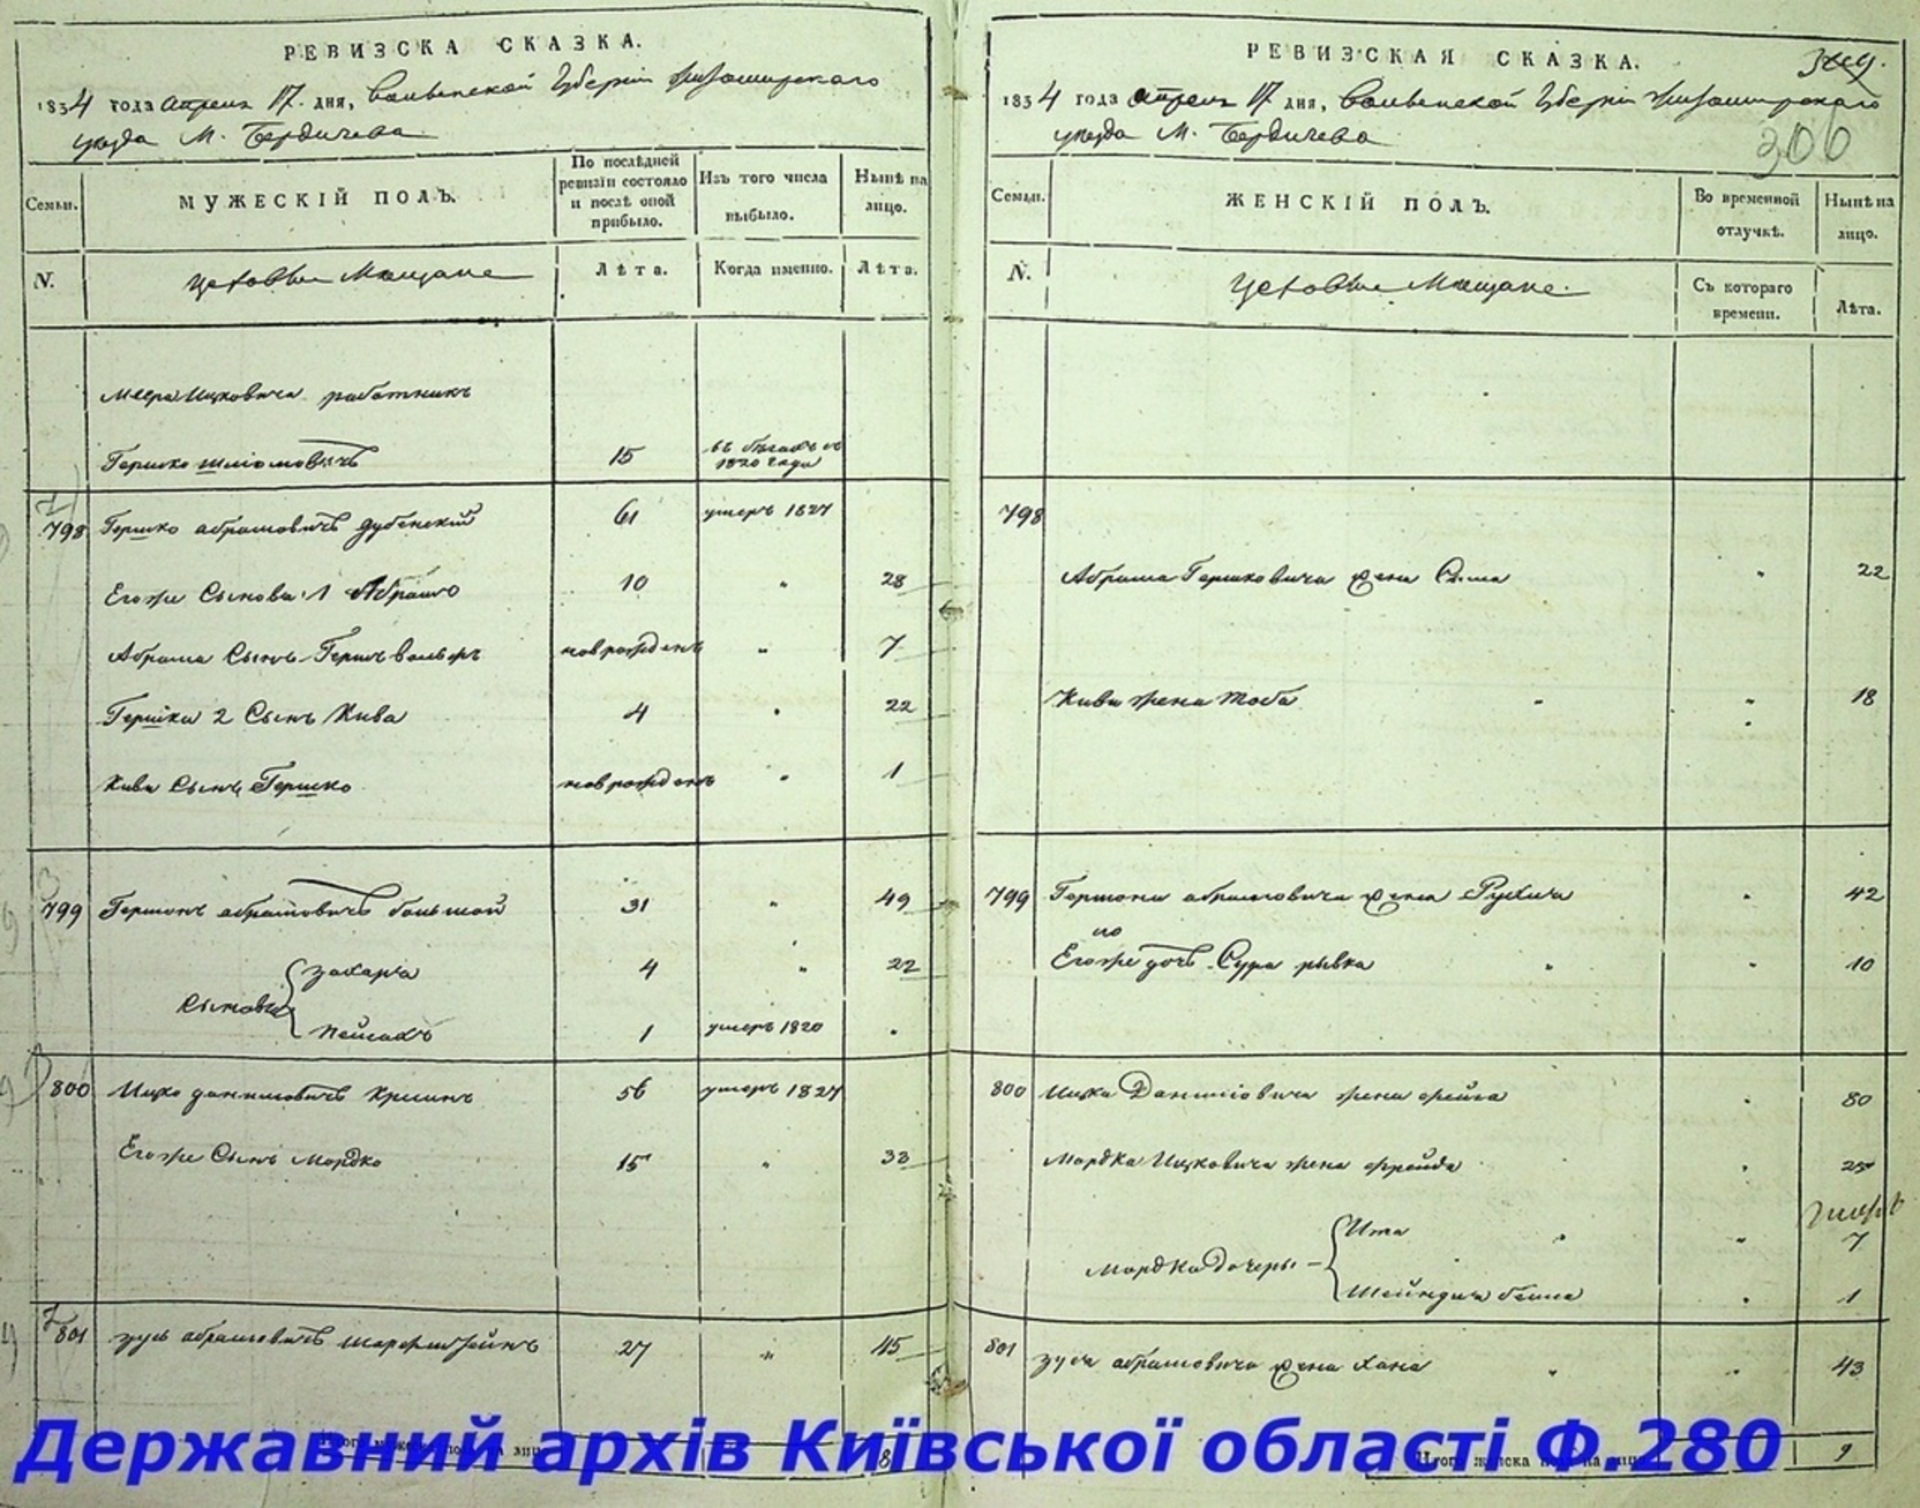 РЕВИЗСКА СКАЗКА.
1834 года апреля 17. дня, Волынской Губерніи Житомирскаго
уезда М. Бердичева
Семьи.
МУЖЕСКІЙ ПОЛЪ.
По послѣдней ревизіи состояло и послѣ оной прибыло.
Изъ того числа выбыло.
Нынѣ на лицо.
N.
Цеховые Мещане
Лѣта.
Когда именно.
Лѣта.
Меера Ицковича работникъ
Гершко Шліомовичъ 15 въ бегахъ съ 1820 года
798 Гершко абрамовичъ дубенский 61 умеръ 1827
Егоже Сыновья 1 Абрамо 10 " 28
Абрама Сынъ Гершъ вольфъ новорожденъ " 7
Гершки 2 Сынъ Кива 4 " 22
Киви Сынъ Гершко новорожденъ " 1
799 Гершонъ абрамовичъ большой 31 " 49
Сыновья
захарья 4 " 22
пейсахъ 1 умеръ 1820
800 Ицко даниловичъ 56 умеръ 1827
Егоже Сынъ Мордко 15 " 33
801 зусь абрамовичъ 27 " 45
8
РЕВИЗСКАЯ СКАЗКА.
306
1834 года апреля 17 дня, Волынской Губерніи Житомирскаго
уезда М. Бердичева
Семьи.
ЖЕНСКІЙ ПОЛЪ.
Во временной отлучкѣ.
Нынѣ на лицо.
N.
Цеховые Мещане.
Съ котораго времени.
Лѣта.
798
Абрама Гершковича жена Сима " 22
Киви жена Тоба " 18
799 Гершона абрамовича жена Рухля " 42
Егоже дочь Сура рывка " 10
800 Ицка Даниловича жена фейга " 80
Мордка Ицковича жена фрейда " 25
Мордка дочеры
Ита " 7
Шейндля бейла " 1
801 зуся абрамовича жена хана " 43
Итого женска пола на лицо 9
Державний архів Київської області Ф.280